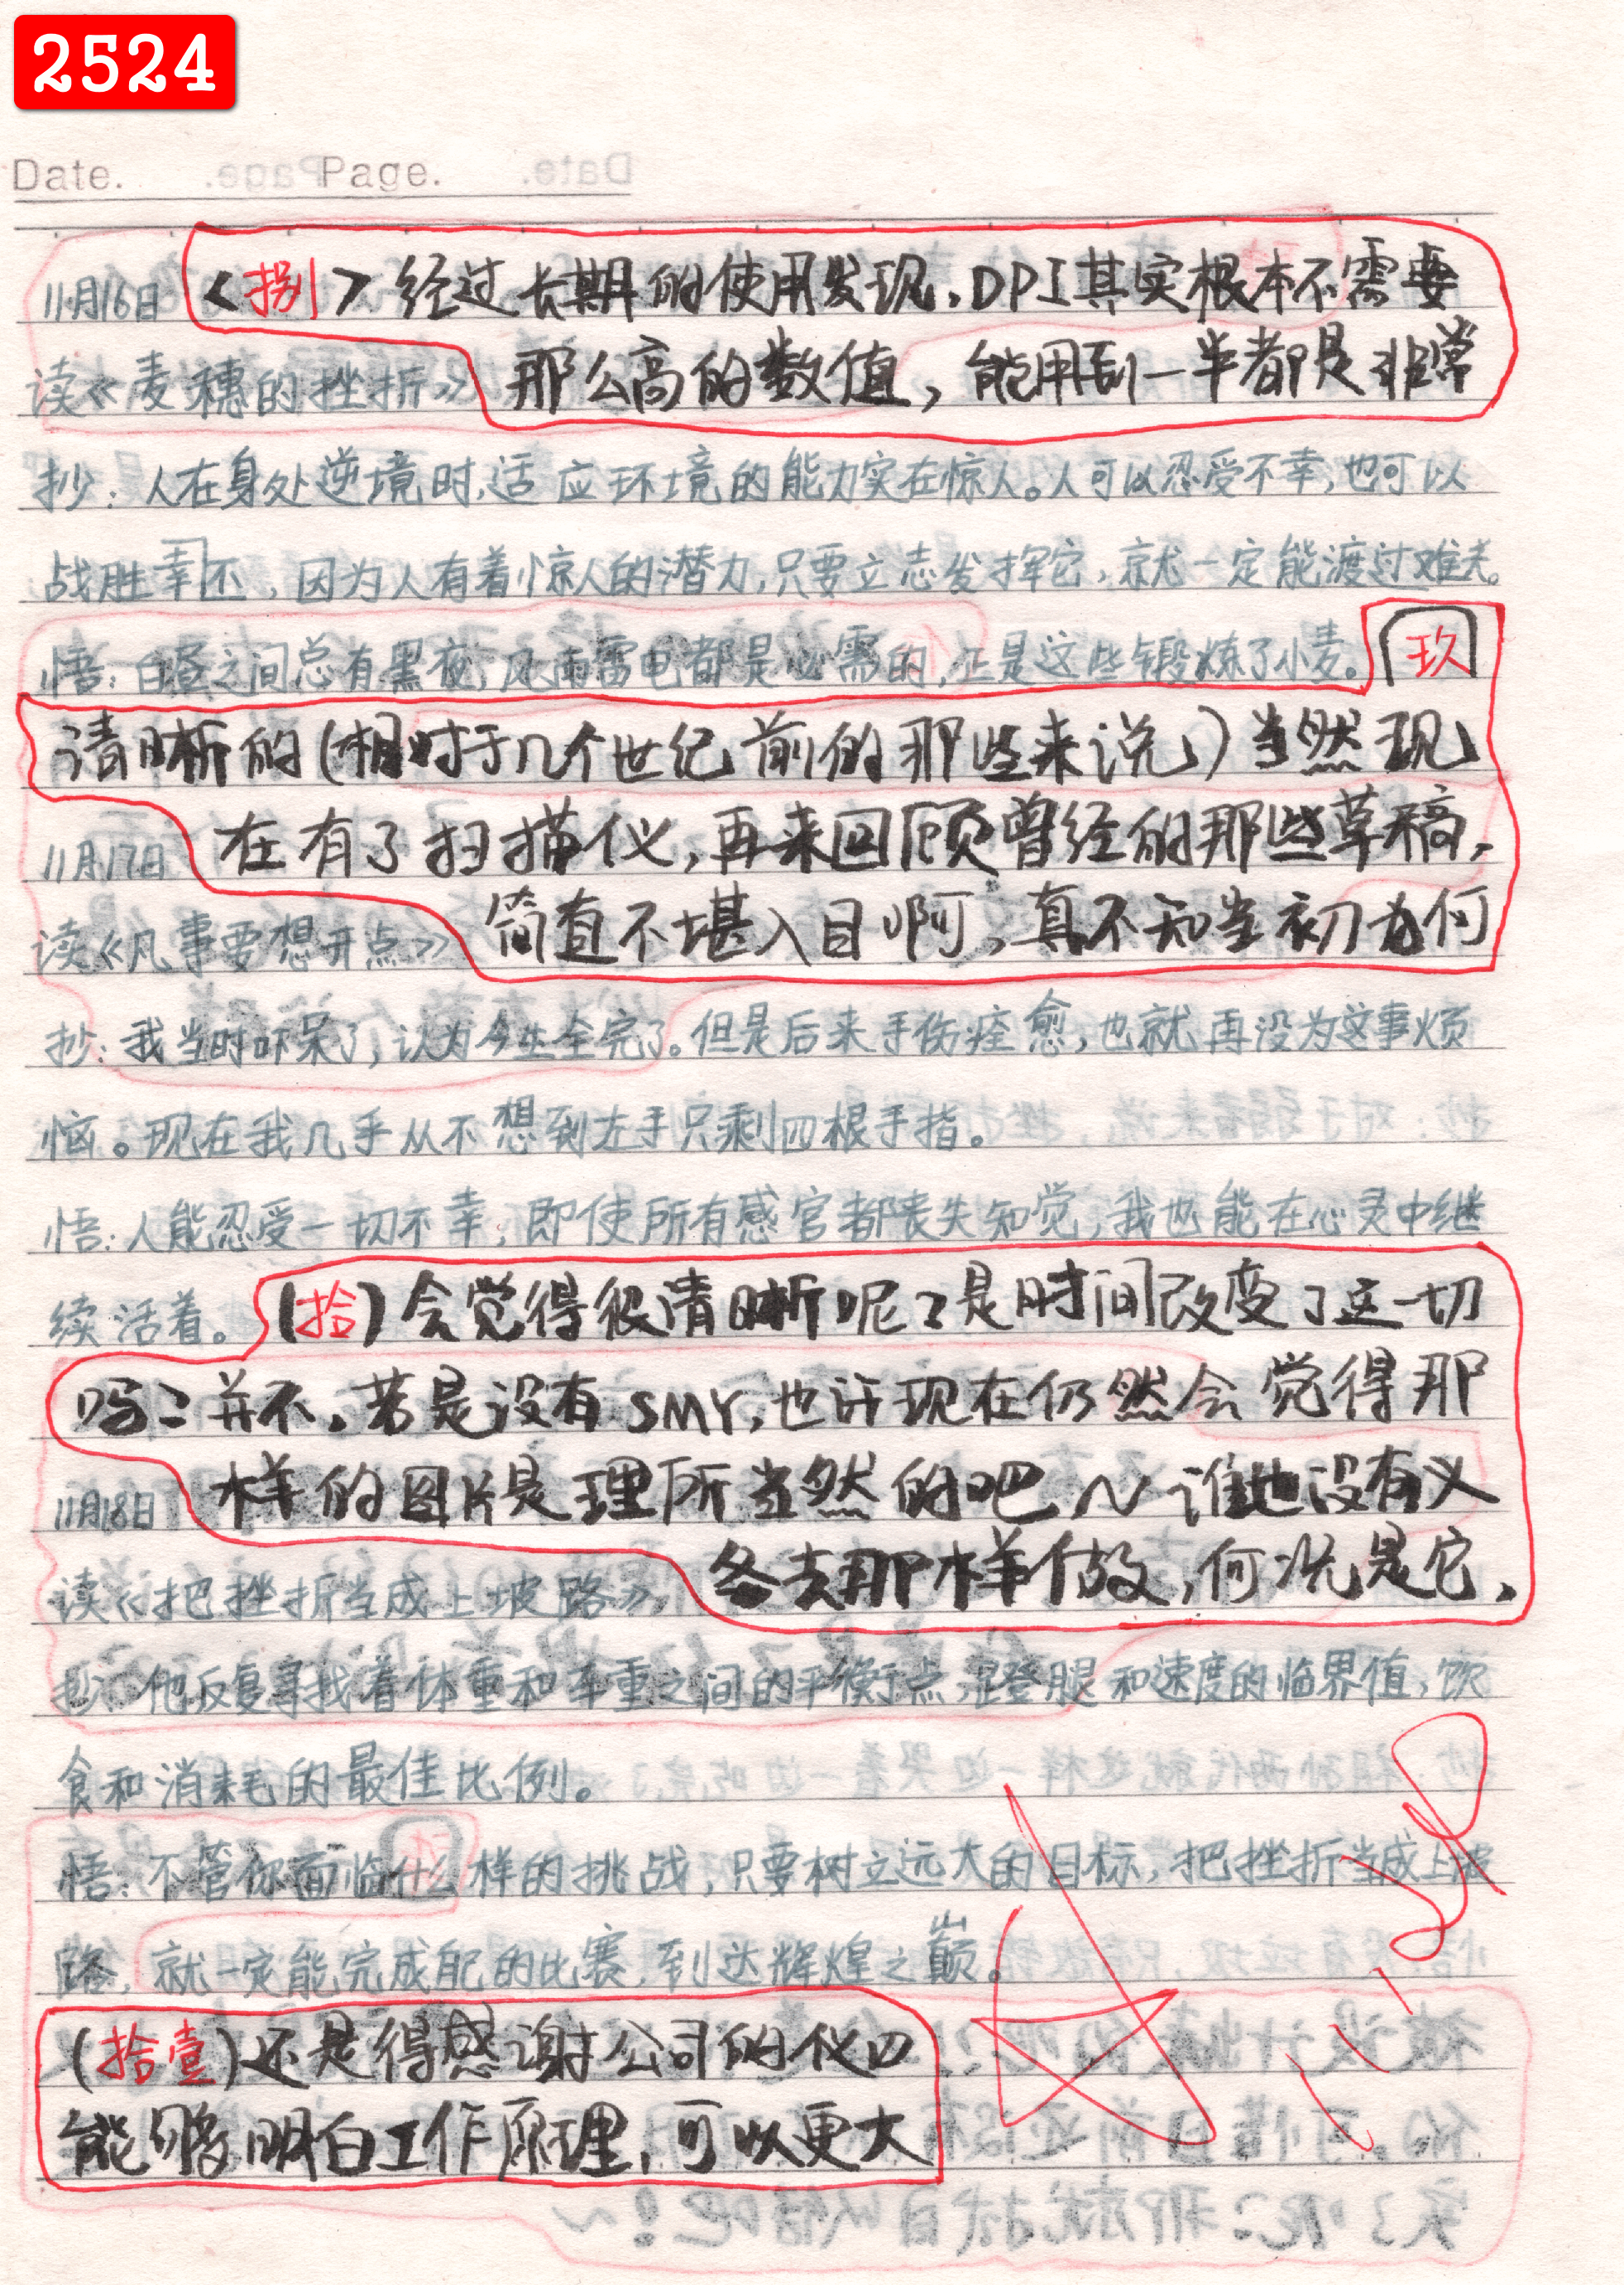 2524
Date. Page.
11月16日 <捌>经过长期的使用发现,DPI其实根本不需要
读《麦穗的挫折》 那么高的数值,能用到一半都是非常
抄:人在身处逆境时,适应环境的能力实在惊人。人可以忍受不幸,也可以
战胜幸不,因为人有着惊人的潜力,只要立志发挥它,就一定能渡过难关。
悟:白昼之间总有黑夜,风雨雷电都是必需的,正是这些锻炼了小麦。(玖
清晰的(相对于几个世纪前的那些来说)当然现
11月17日 在有了扫描仪,再来回顾曾经的那些草稿,
读《凡事要想开点》 简直不堪入目啊,真不知当初为何
抄:我当时吓呆了,认为今生全完了。但是后来手伤痊愈,也就再没为这事烦
恼。现在我几乎从不想到左手只剩四根手指。
悟:人能忍受一切不幸,即使所有感官都丧失知觉,我也能在心灵中继
续活着。(拾)会觉得很清晰呢?是时间改变了这一切
吗?并不。若是没有SMY,也许现在仍然会觉得那
11月18日 样的图片是理所当然的吧~谁也没有义
读《把挫折当成上坡路》 务去那样做,何况是它,
抄:他反复寻找着体重和车重之间的平衡点,蹬腿和速度的临界值,饮
食和消耗的最佳比例。
悟:不管你面临什么样的挑战,只要树立远大的目标,把挫折当成上坡
路,就一定能完成自己的比赛,到达辉煌之巅。
(拾壹)还是得感谢公司的仪四
能够明白工作原理,可以更大